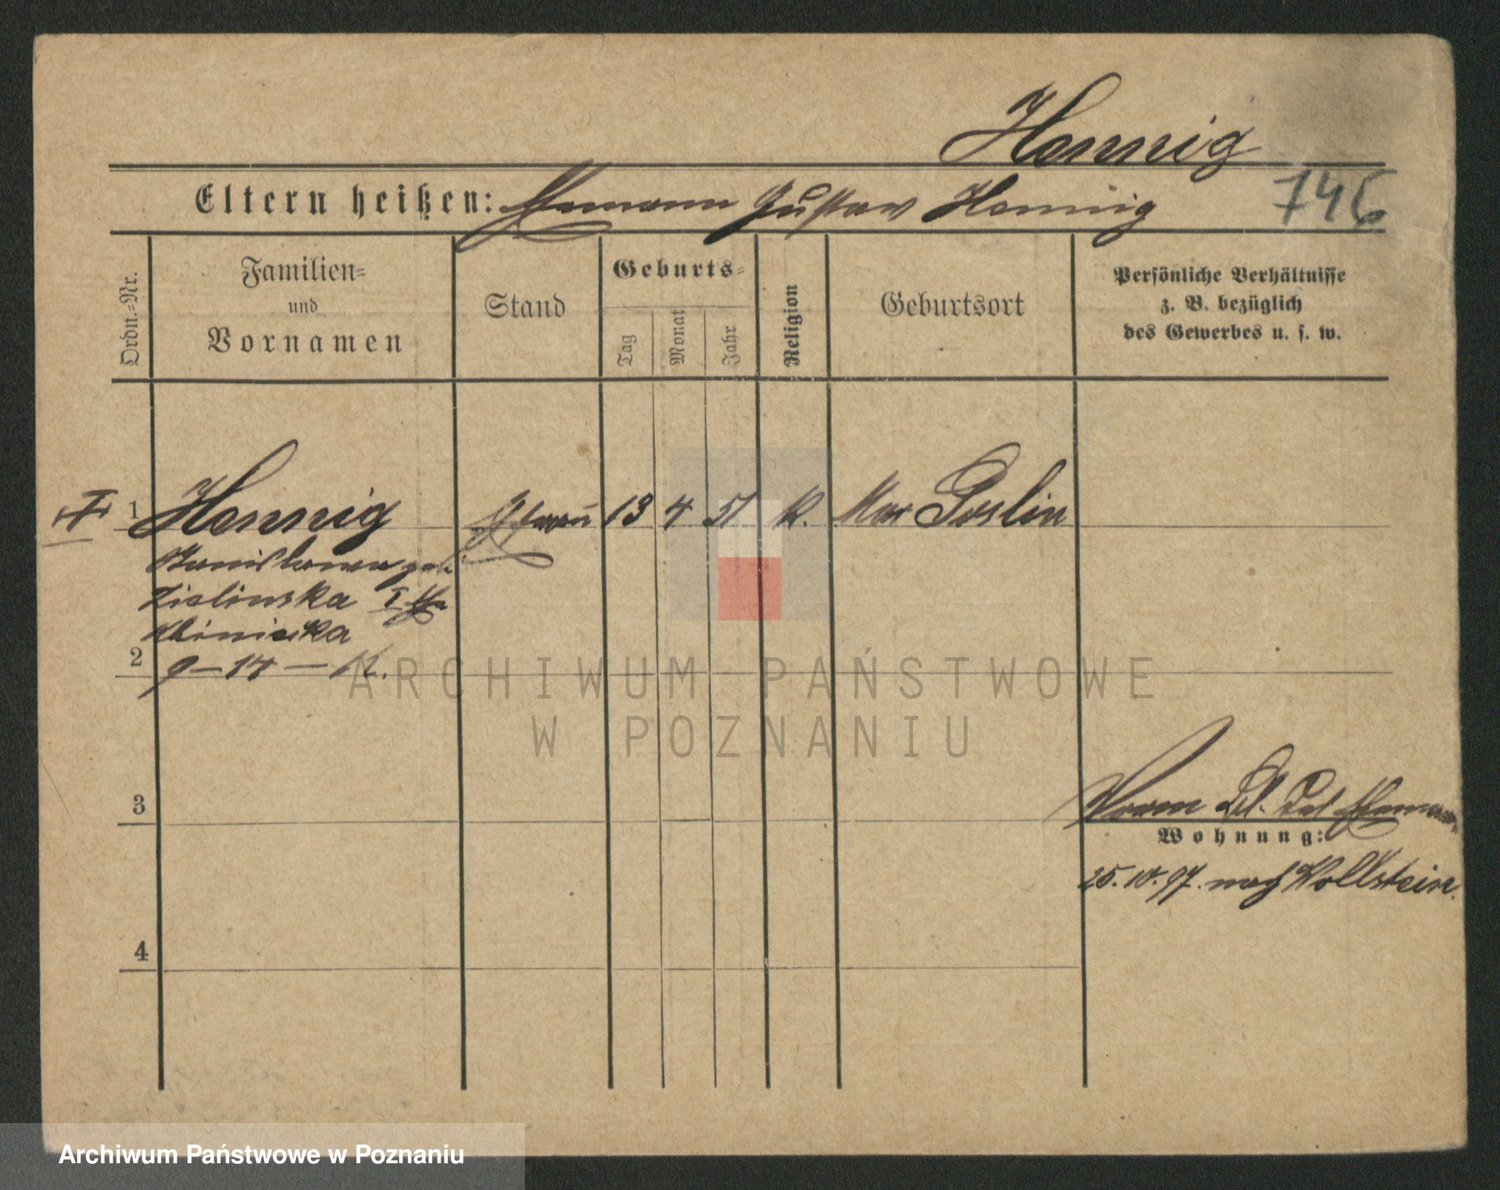 Hennig
Eltern heißen: Ehemann Gustav Hennig 746
Ordn.-Nr.
Familien- und Vornamen
Stand
Geburts-
Tag
Monat
Jahr
Religion
Geburtsort
Persönliche Verhältnisse
z. B. bezüglich
des Gewerbes u. s. w.
1 Hennig Ehefrau 13 4 51 k. Mur Goslin
Stanislawa geb.
Zielinska I. Ehe
2
3
Wwnn
Wohnung:
25. 10. 97. nach Wollstein.
4
ARCHIWUM PAŃSTWOWE
W POZNANIU
Archiwum Państwowe w Poznaniu